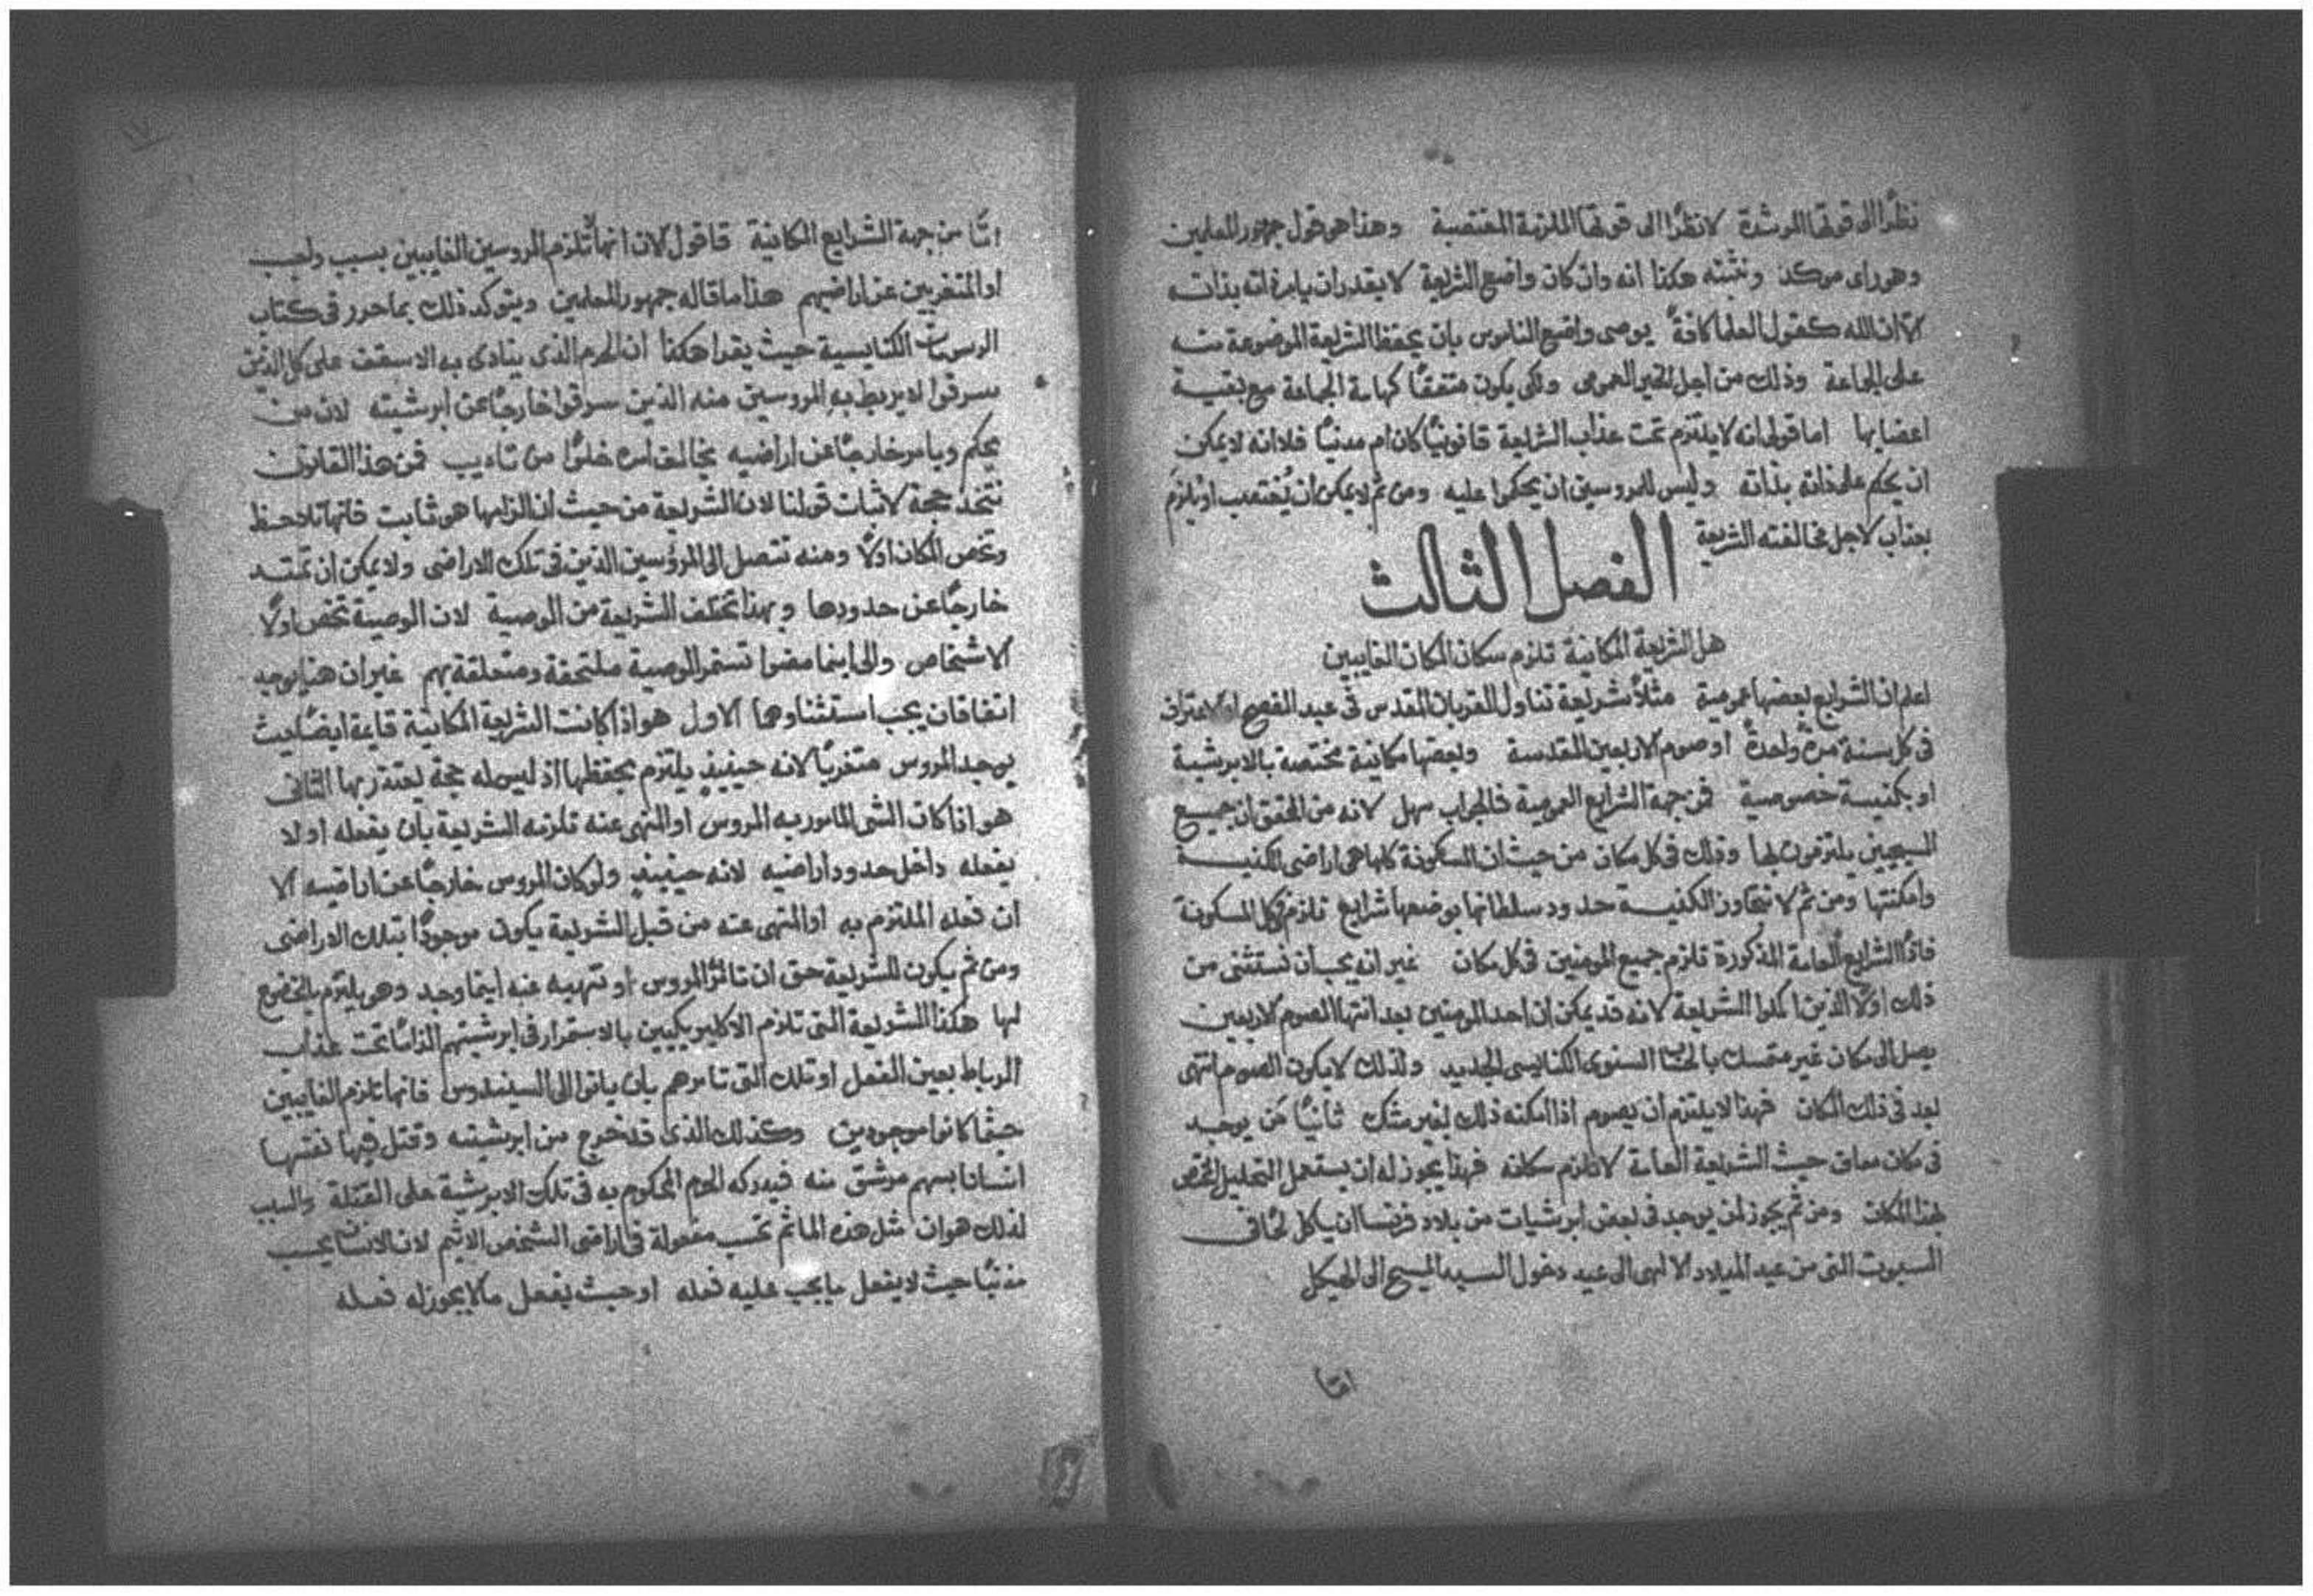 نظرًا الى قوتها المرشدة لا نظرًا الى قوتها الملزمة المغتصبة وهذا هو قول جمهور المعلمين
وهو راى موكد ونثبته هكذا انه وان كان واضع الشريعة لا يقدر ان يامر ذاته بذاته
الا ان الله كقول العلما كافةً يوصى واضع الناموس بان يحفظ الشريعة الموضوعة منه
على الجماعة وذلك من اجل الخير العمومى ولكى يكون متفقًا كهامة الجماعة مع بقية
اعضايها اما قولى انه لا يلتزم تحت عذاب الشريعة قانونيًا كان ام مدنيًا فلانه لا يمكن
ان يحكم على ذاته بذاته وليس للمروسين ان يحكموا عليه ومن ثم لا يمكن ان يُغتصب او يلزم
بعذاب لاجل مخالفته الشريعة
الفصل الثالث
هل الشريعة المكانية تلزم سكان المكان الغايبين
اعلم ان الشرايع بعضها عمومية مثلاً شريعة تناول القربان المقدس فى عيد الفصح او الاعتراف
فى كل سنة مرةً واحدةً او صوم الاربعين المقدسة وبعضها مكانية مختصة بالابرشية
او بكنيسة خصوصية فمن جهة الشرايع العمومية فالجواب سهل لانه من المحقق ان جميع
المسيحيين يلتزمون بها وذلك فى كل مكان من حيث ان المسكونة كلها هى اراضى الكنيسة
وامكنتها ومن ثم لا تتجاوز الكنيسة حدود سلطانها بوضعها شرايع تلزم كل المسكونة
فاذًا الشرايع العامة المذكورة تلزم جميع المومنين فى كل مكان غير انه يجب ان نستثنى من
ذلك اولاً الذين اكملوا الشريعة لانه قد يمكن ان احد المومنين بعد انتها الصوم الاربعين
يصل الى مكان غير متمسك بالحساب السنوى الكنايسى الجديد ولذلك لا يكون الصوم انتهى
بعد فى ذلك المكان فهذا لا يلتزم ان يصوم اذا امكنه ذلك بغير شك ثانيًا من يوجد
فى مكان معاف حيث الشريعة العامة لا تلزم سكانه فهذا يجوز له ان يستعمل التحليل المختص
بهذا المكان ومن ثم يجوز لمن يوجد فى بعض ابرشيات من بلاد فرنسا ان ياكل لحمًا فى
السبوت التى من عيد الميلاد الالهى الى عيد دخول السيد المسيح الى الهيكل
امّا
امّا من جهة الشرايع المكانية فاقول الان انها لا تلزم المروسين الغايبين بسبب واجب
او المتغربين عن اراضيهم هذا ما قاله جمهور المعلمين ويتوكد ذلك بما حرر فى كتاب
الرسومات الكنايسية حيث يقرا هكذا ان الحرم الذى ينادى به الاسقف على كل الذين
سرقوا لا يربط به المروسين منه الذين سرقوا خارجًا عن ابرشيته لان من
يحكم ويامر خارجًا عن اراضيه يخالف امره خلوًا من تاديب فمن هذا القانون
نتخذ حجة لاثبات قولنا لان الشريعة من حيث ان الزامها هو ثابت فانها تلاحظ
وتخص المكان اولاً ومنه تتصل الى المرؤسين الذين فى تلك الاراضى ولا يمكن ان تمتد
خارجًا عن حدودها وبهذا تختلف الشريعة من الوصية لان الوصية تخص اولاً
الاشخاص والى اينما مضوا تستمر الوصية ملتحقة ومتعلقة بهم غير ان هنا يوجد
اتفاقان يجب استثناوهما الاول هو اذا كانت الشريعة المكانية قايمة ايضًا حيث
يوجد المروس متغربًا لانه حينيذٍ يلتزم بحفظها اذ ليس له حجة يعتذر بها الثانى
هو اذا كان الشى المامور به المروس او المنهى عنه تلزمه الشريعة بان يفعله او لا
يفعله داخل حدود اراضيه لانه حينيذٍ ولو كان المروس خارجًا عن اراضيه الا
ان فعله الملتزم به او المنهى عنه من قبل الشريعة يكون موجودًا بتلك الاراضى
ومن ثم يكون للشريعة حق ان تامر المروس او تنهيه عنه اينما وجد وهو يلتزم بالخضوع
لها هكذا الشريعة التى تلزم الاكليريكيين بالاستمرار فى ابرشيتهم الزامًا تحت عذاب
الرباط بعين الفعل او تلك التى تامرهم بان ياتوا الى السينودس فانها تلزم الغايبين
حيثما كانوا موجودين وكذلك الذى قد خرج من ابرشيته وقتل فيها نفسها
انسانا بسهم مرشق منه فيدركه الحرم المحكوم به فى تلك الابرشية على القتلة والسبب
لذلك هو ان مثل هذه الماثم تحسب مفعولة فى اراضى الشخص الاثيم لان الانسان يحسب
مذنبًا حيث لا يفعل ما يجب عليه فعله او حيث يفعل ما لا يجوز له فعله